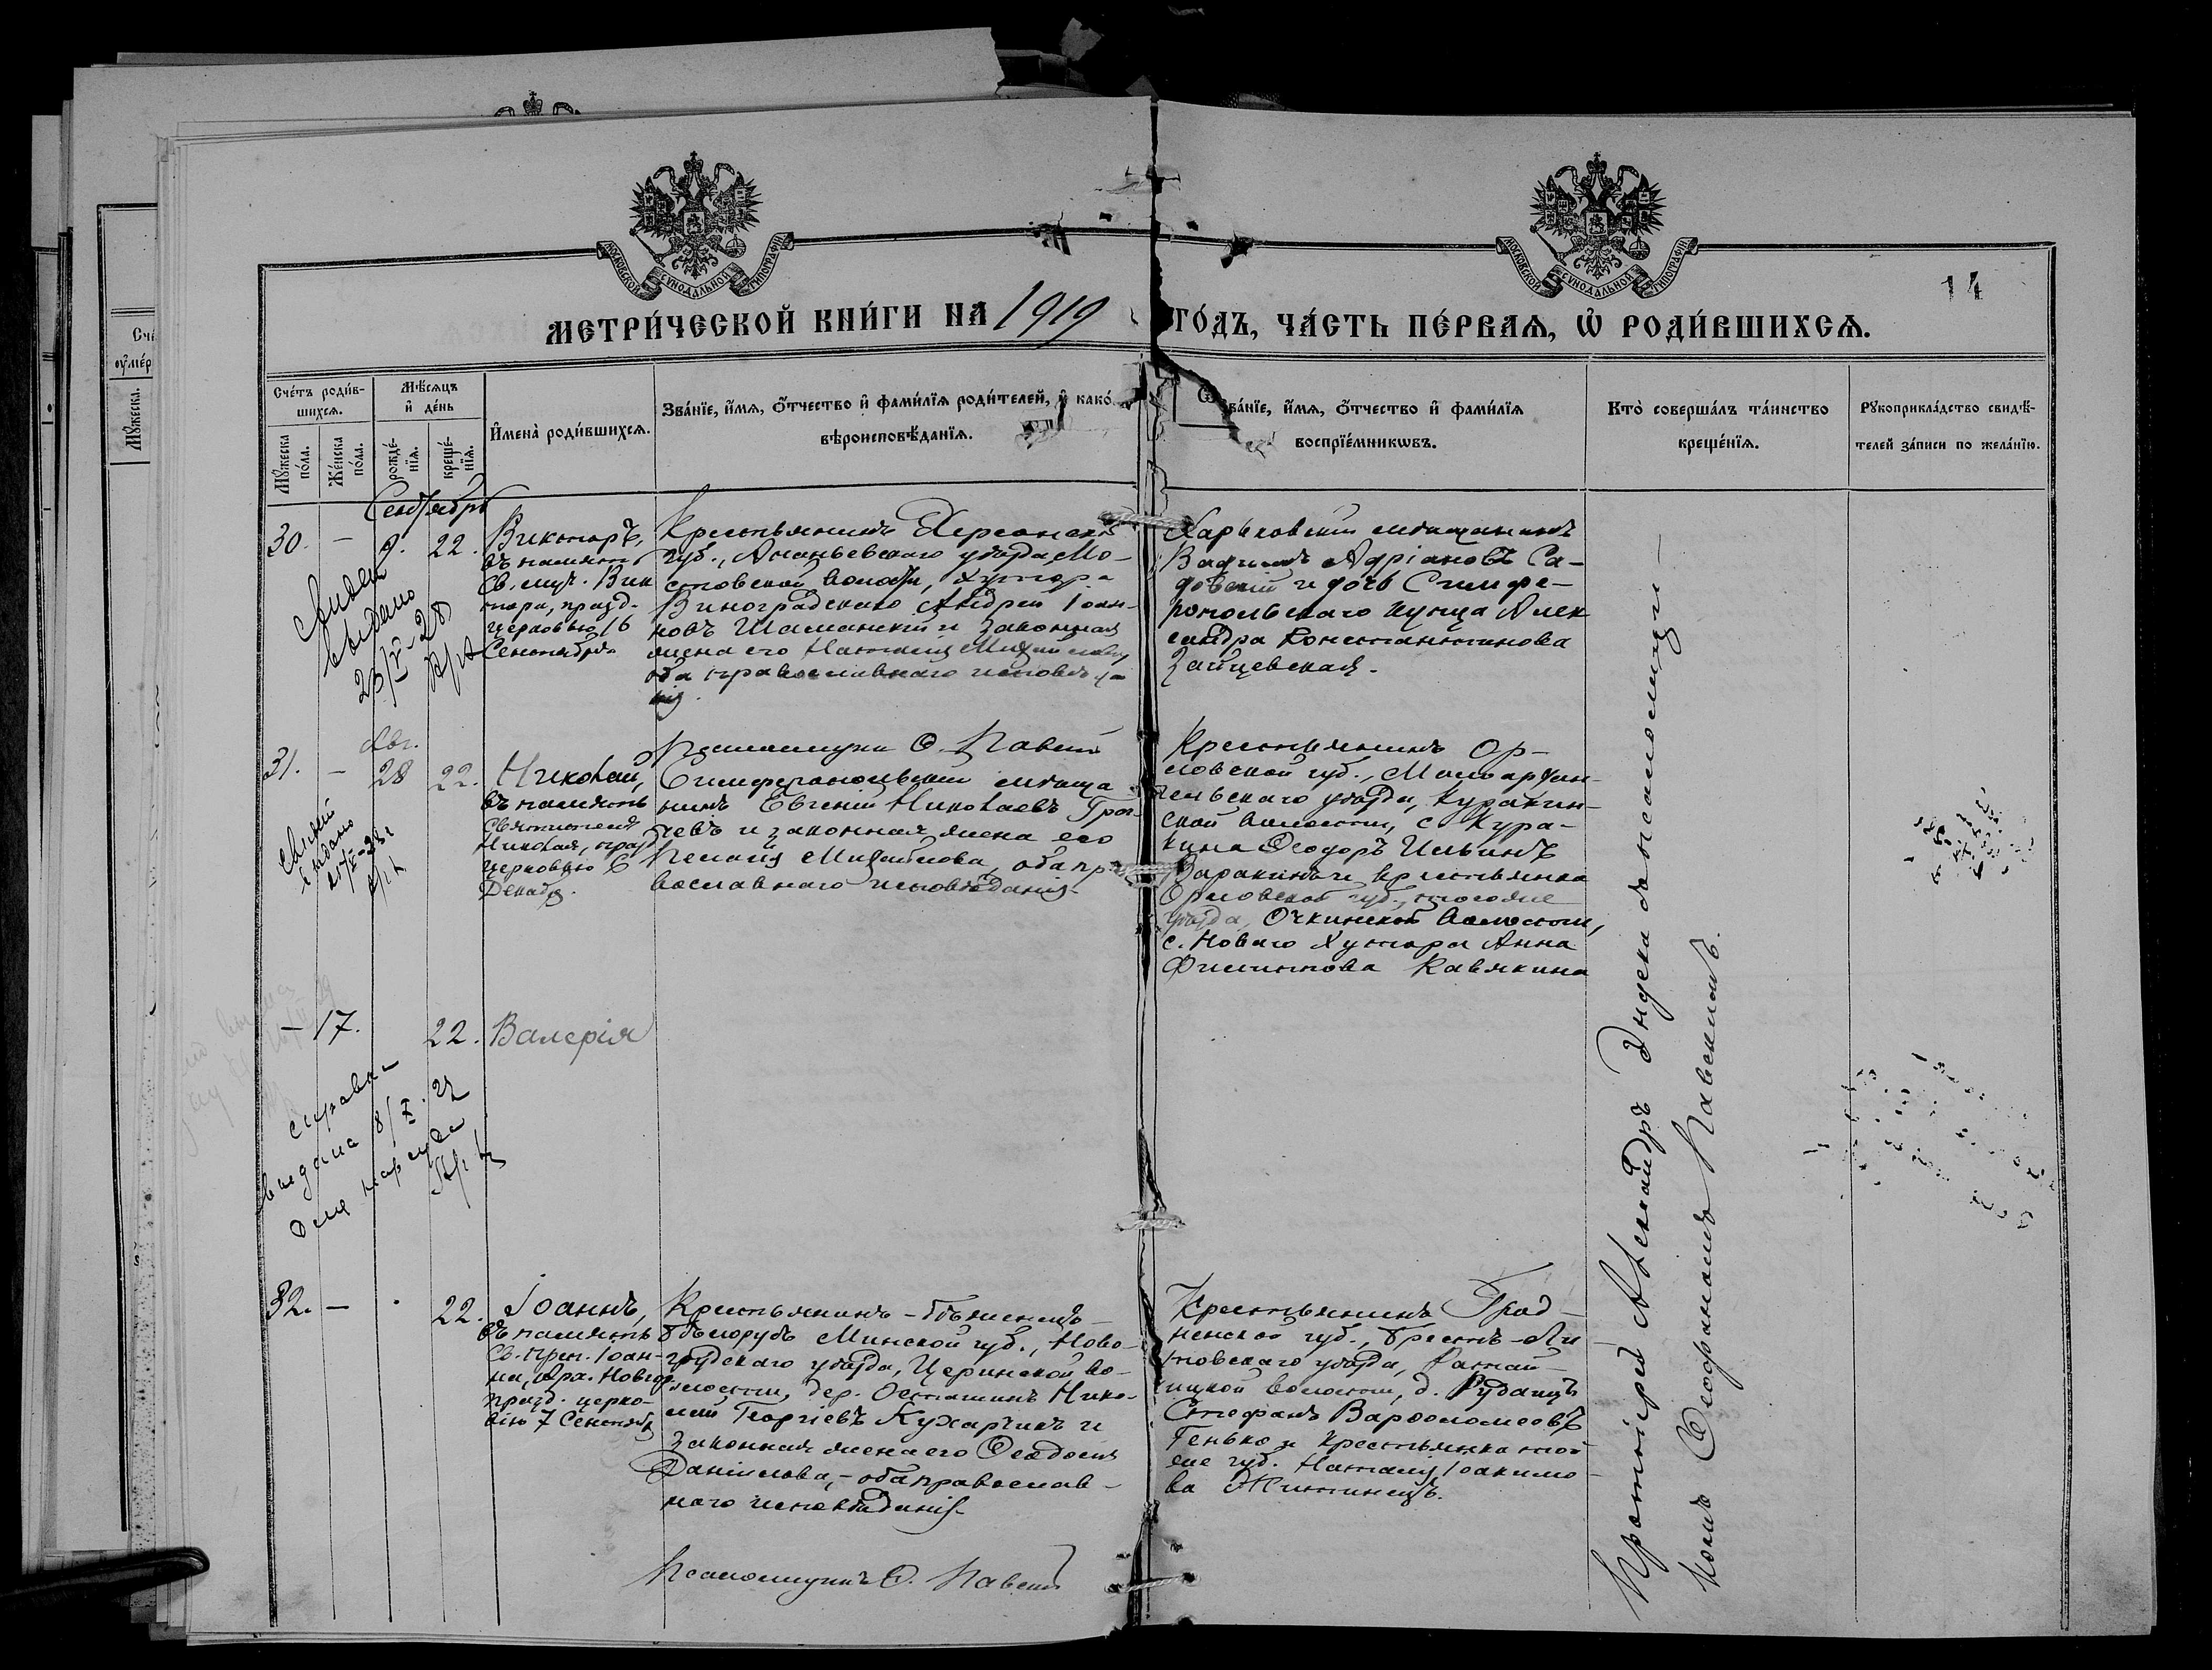 МОСКОВСКОЙ СѴНОДАЛЬНОЙ ТИПОГРАФІИ
МОСКОВСКОЙ СѴНОДАЛЬНОЙ ТИПОГРАФІИ
14
МЕТРИ́ЧЕСКОЙ КНИ́ГИ НА 1919 ГО́ДЪ, ЧА́СТЬ ПЕ́РВАѦ, Ѡ҆ РОДИ́ВШИХСѦ.
Сче́тъ роди́в-
шихсѧ.
Мꙋ́жеска по́ла.
Же́нска по́ла.
Мѣ́сѧцъ
и҆ де́нь
рожде́-
нїѧ.
креще́-
нїѧ.
И҆мена̀ роди́вшихсѧ.
Зва́нїе, и҆́мѧ, ѻ҆́тчество и҆ фамі́лїѧ роди́телей, и҆ како́
вѣроисповѣ́данїѧ.
ва́нїе, и҆́мѧ, ѻ҆́тчество и҆ фамі́лїѧ
воспрїе́мникѡвъ.
Кто̀ соверша́лъ та́инство
креще́нїѧ.
Рꙋкоприкла́дство свидѣ́-
телей за́писи по жела́нїю.
Сентябрь
30. - 9. 22.
Викторъ,
въ память
Св. муч. Вик
тора, празд.
церковью 16
Сентября
Крестьянинъ Херсонской
губ., Ананьевскаго уѣзда, Мо-
стовской волости, хутора
Виноградскаго Андрей Іоан-
новъ Шаманскій и законная
жена его Наталія Михайлова,
оба православнаго исповѣда
нія.
Харьковскій мѣщанинъ
Вадимъ Адріановъ Са-
довскій и дочь Симфе-
ропольскаго купца Алек
сандра Константинова
Зайцевская.
выдано
28
Псаломщикъ Ѳ. Павскій
Авг.
31. - 28 22.
Николай,
въ память
Святителя
Николая, празд
церковью 6
Декабр.
Симферопольскій мѣща
нинъ Евгеній Николаевъ
и законная жена его
Пелагія Михайлова, оба пра
вославнаго исповѣданія.
Крестьянинъ Ор-
ловской губ., Малоархан-
гельскаго уѣзда, Куракин-
ской волости, с. Кура-
кина Ѳеодоръ Ильинъ
и крестьянка
Орловской губ., того же
уѣзда, Очкинской волости,
с. Новаго Хутора Анна
Филиппова
выдано
- 17. 22.
Валерія
справка
выдана 8/X.
для нарсуда
32. - 22.
Іоаннъ,
въ память
Св. преп. Іоан-
на, Арх. Новгор.
празд. церко-
вію 7 Сентябр
Крестьянинъ - бѣженецъ
Минской губ., Ново-
грудскаго уѣзда, Циринской во-
лости, дер. Осташинъ Нико-
лай Георгіевъ Кухарчикъ и
законная жена его Ѳеодосія
Даніилова, - оба православ-
наго исповѣданія.
Крестьянинъ Грод-
ненской губ., Брестъ-Ли
товскаго уѣзда,
волости, д.
Стефанъ Варѳоломеевъ
Генько и крестьянка той
же губ. Наталія Іоакимо-
ва
Псаломщикъ Ѳ. Павскій
Протоіерей Александръ Эндека съ псаломщи-
комъ Ѳеофаномъ Павскимъ.